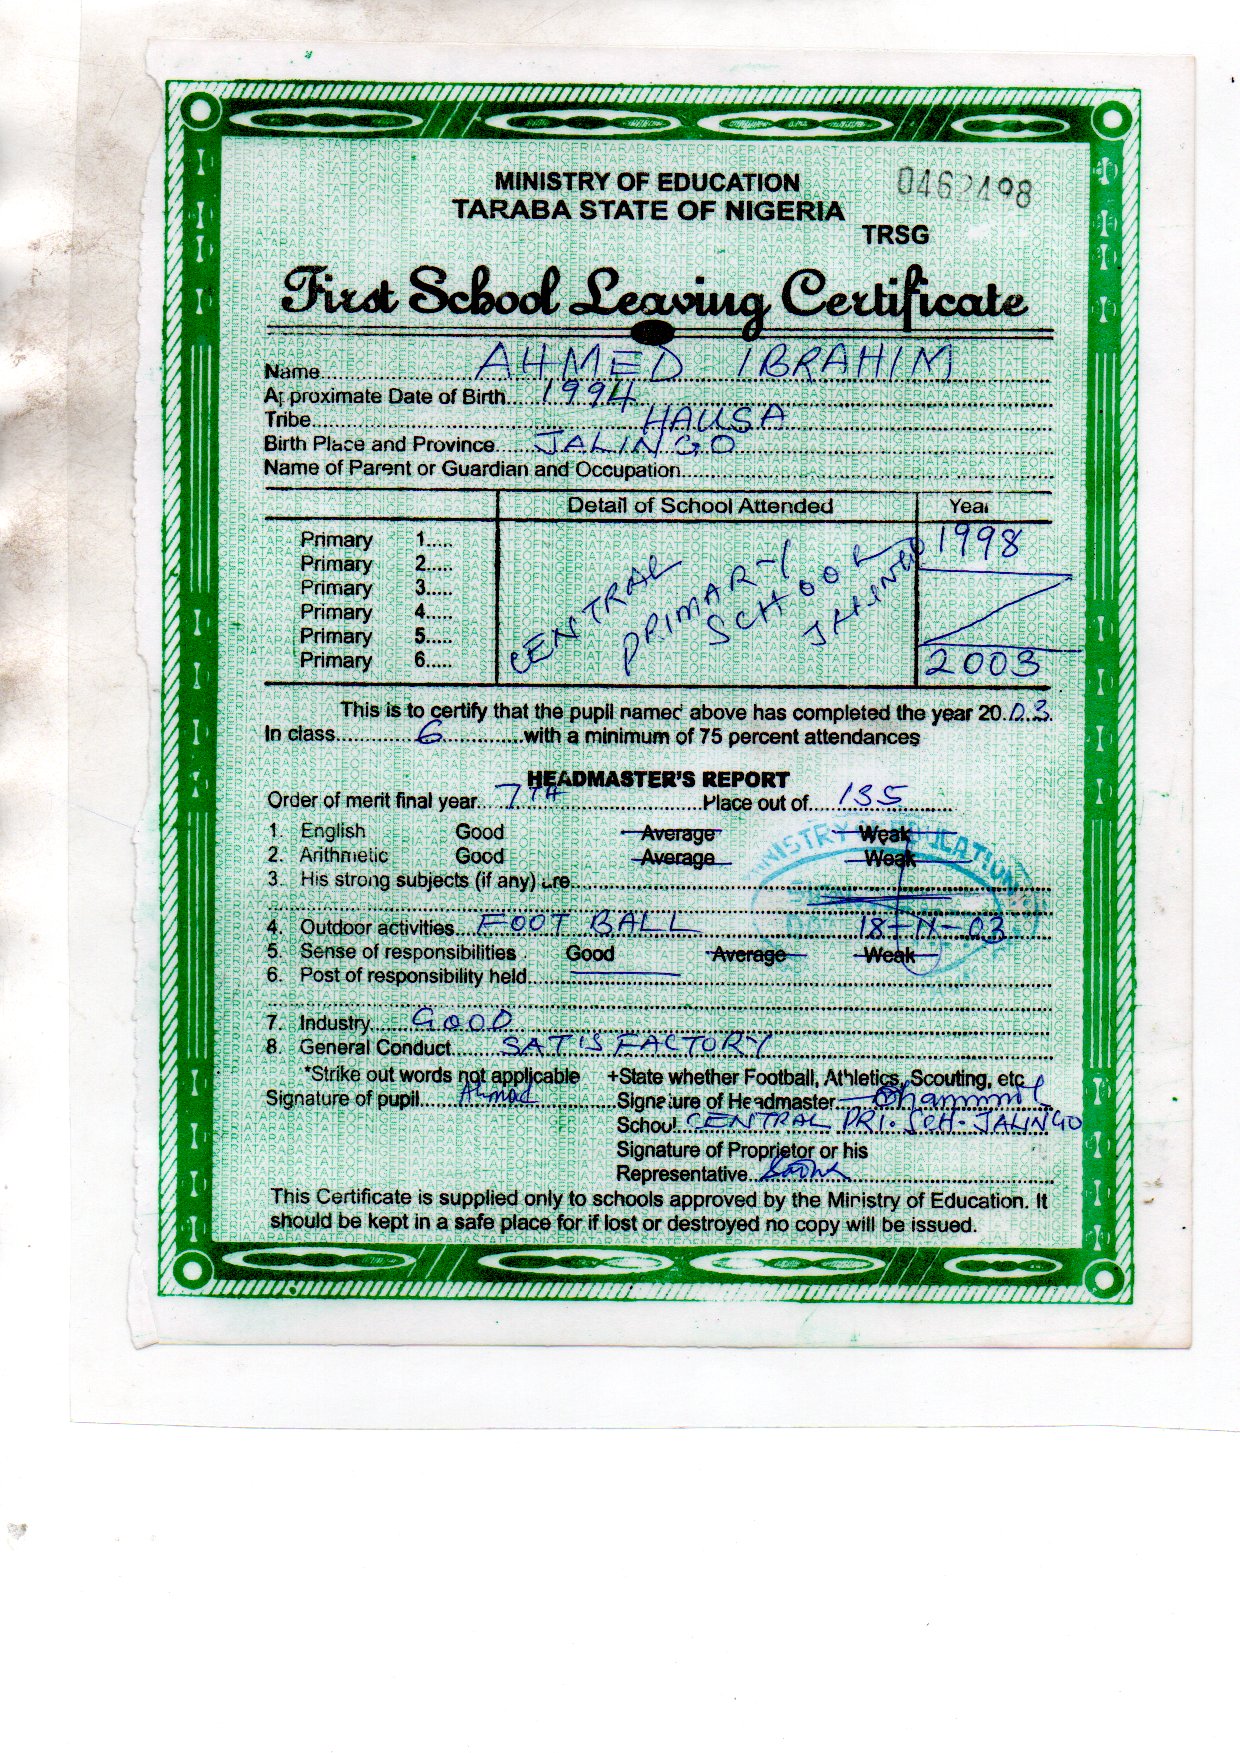 MINISTRY OF EDUCATION
0462498
TARABA STATE OF NIGERIA
TRSG
First School Leaving Certificate
Name AHMED IBRAHIM
Approximate Date of Birth 1994
Tribe HAUSA
Birth Place and Province JALINGO
Name of Parent or Guardian and Occupation
Detail of School Attended Year
Primary 1 1998
Primary 2
Primary 3
Primary 4
Primary 5
Primary 6 2003
CENTRAL
PRIMARY
SCHOOL
JALINGO
This is to certify that the pupil named above has completed the year 2003.
In class 6 with a minimum of 75 percent attendances
HEADMASTER'S REPORT
Order of merit final year 7TH Place out of 135
1. English Good Average Weak
2. Arithmetic Good Average Weak
MINISTRY OF EDUCATION
3. His strong subjects (if any) are
4. Outdoor activities FOOT BALL 18-11-03
5. Sense of responsibilities Good Average Weak
6. Post of responsibility held
7. Industry GOOD
8. General Conduct SATISFACTORY
*Strike out words not applicable +State whether Football, Athletics, Scouting, etc
Signature of pupil Ahmad Signature of Headmaster
School CENTRAL PRI. SCH. JALINGO
Signature of Proprietor or his
Representative
This Certificate is supplied only to schools approved by the Ministry of Education. It
should be kept in a safe place for if lost or destroyed no copy will be issued.